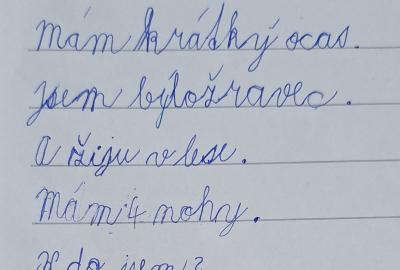 Mám krátký ocas.
jsem býložravec.
A žiju v lese.
Mám 4 nohy.
Kdo jsem?